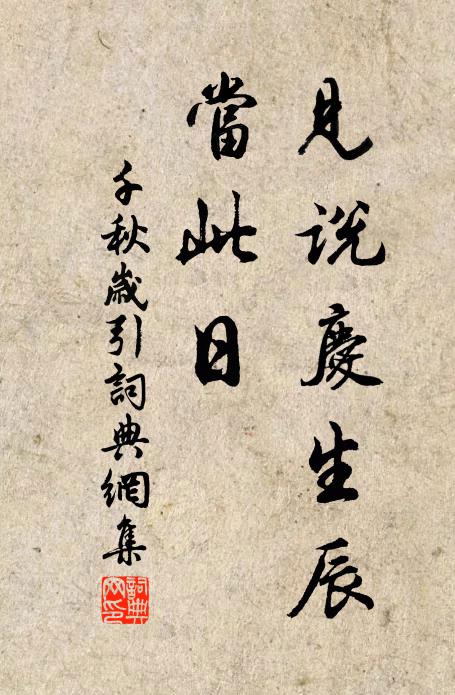 見說慶生辰
當此日
千秋歲引詞典網集
詞典網印